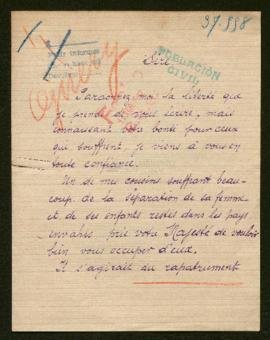 37.998
Sire
POBLACIÓN
CIVIL
Pardonnez moi la liberté que
je prends de vous écrire, mais
connaissant votre bonté pour ceux
qui souffrent, je viens à vous en
toute confiance.
Un de mes cousins souffrant beau-
coup de la séparation de sa femme
et de ses enfants restés dans les pays
envahis prie votre Majesté de vouloir
bien vous occuper d'eux.
Il s'agirait du rapatriement